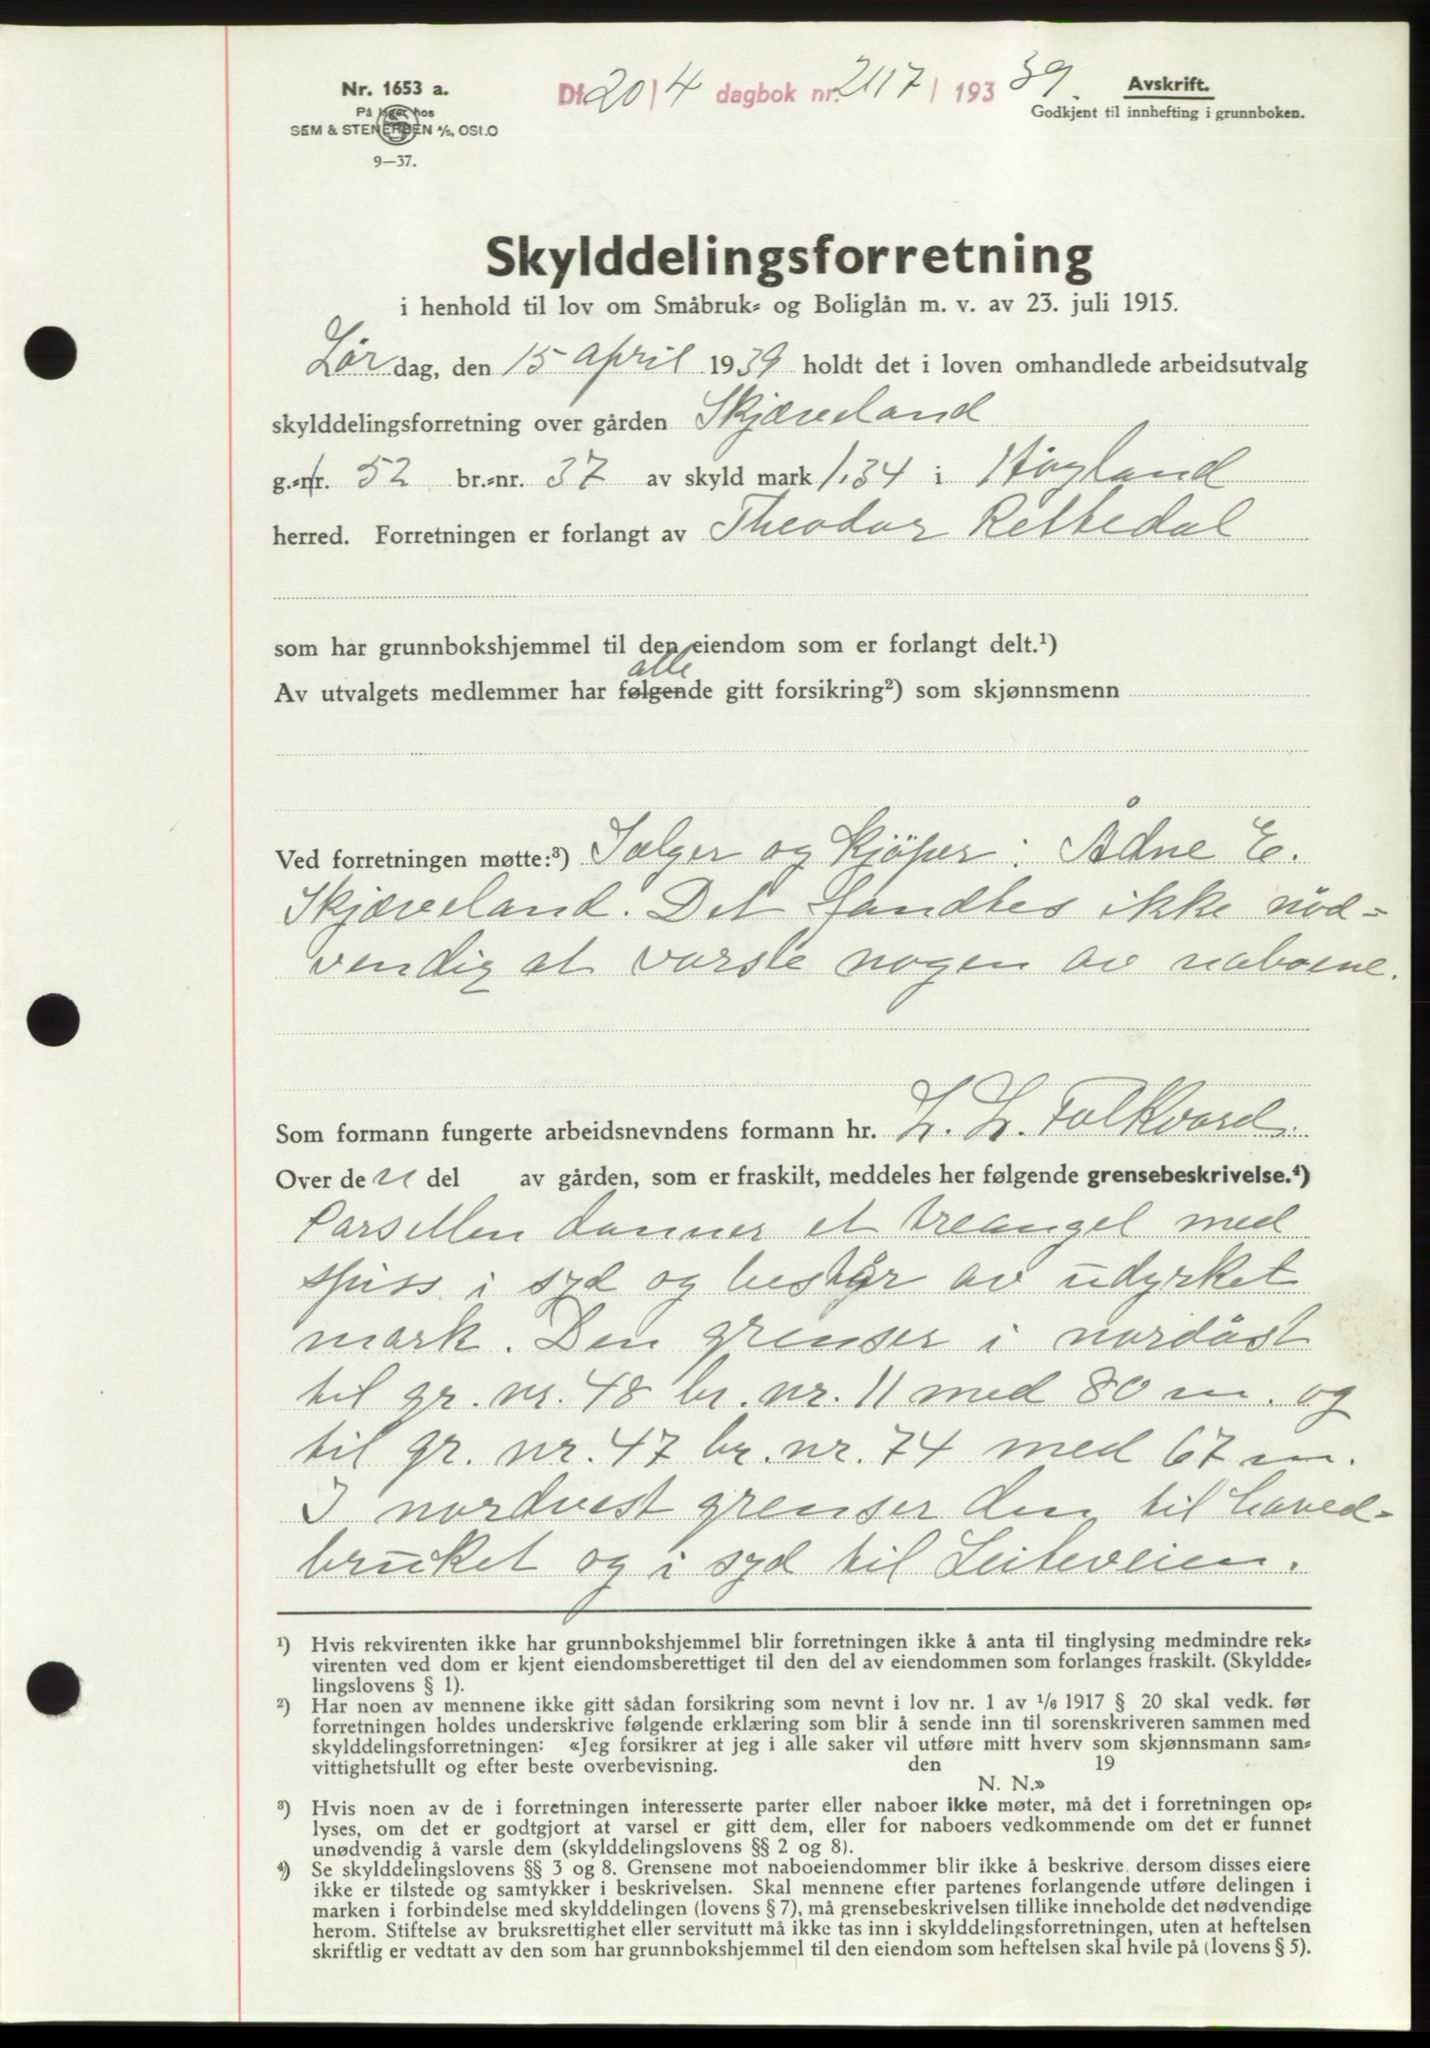 Nr. 1653 a.
På lager hos
SEM & STENERSEN A/S, OSLO
9—37.
Df 20/4 dagbok nr. 2117 / 193 39.
Avskrift.
Godkjent til innhefting i grunnboken.
Skylddelingsforretning
i henhold til lov om Småbruk- og Boliglån m. v. av 23. juli 1915.
Lør dag, den 15 april 1939 holdt det i loven omhandlede arbeidsutvalg
skylddelingsforretning over gården Skjæveland
g.-nr. 52 br.-nr. 37 av skyld mark 1.34 i Høyland
herred. Forretningen er forlangt av Theodor Rettedal
som har grunnbokshjemmel til den eiendom som er forlangt delt.¹)
alle
Av utvalgets medlemmer har følgende gitt forsikring²) som skjønnsmenn
Ved forretningen møtte:³) Sælger og kjöper: Ådne E.
Skjæveland. Det fandtes ikke nöd-
vendig at varsle nogen av naboene.
Som formann fungerte arbeidsnevndens formann hr. L. L. Folkvord.
Over de n del av gården, som er fraskilt, meddeles her følgende grensebeskrivelse.⁴)
Parsellen danner et treangel med
spiss i syd og består av udyrket
mark. Den grenser i nordöst
til gr. nr. 48 br. nr. 11 med 80 m. og
til gr. nr. 47 br. nr. 74 med 67 m.
I nordvest grenser den til hoved-
bruket og i syd til Leiteveien.
¹) Hvis rekvirenten ikke har grunnbokshjemmel blir forretningen ikke å anta til tinglysing medmindre rek-
virenten ved dom er kjent eiendomsberettiget til den del av eiendommen som forlanges fraskilt. (Skyldde-
lingslovens § 1).
²) Har noen av mennene ikke gitt sådan forsikring som nevnt i lov nr. 1 av ¹/₆ 1917 § 20 skal vedk. før
forretningen holdes underskrive følgende erklæring som blir å sende inn til sorenskriveren sammen med
skylddelingsforretningen: «Jeg forsikrer at jeg i alle saker vil utføre mitt hverv som skjønnsmann sam-
vittighetsfullt og efter beste overbevisning. den 19
N. N.»
³) Hvis noen av de i forretningen interesserte parter eller naboer ikke møter, må det i forretningen op-
lyses, om det er godtgjort at varsel er gitt dem, eller for naboers vedkommende om det er funnet
unødvendig å varsle dem (skylddelingslovens §§ 2 og 8).
⁴) Se skylddelingslovens §§ 3 og 8. Grensene mot naboeiendommer blir ikke å beskrive, dersom disses eiere
ikke er tilstede og samtykker i beskrivelsen. Skal mennene efter partenes forlangende utføre delingen i
marken i forbindelse med skylddelingen (lovens § 7), må grensebeskrivelsen tillike inneholde det nødvendige
herom. Stiftelse av bruksrettighet eller servitutt må ikke tas inn i skylddelingsforretningen, uten at heftelsen
skriftlig er vedtatt av den som har grunnbokshjemmel til den eiendom som heftelsen skal hvile på (lovens § 5).